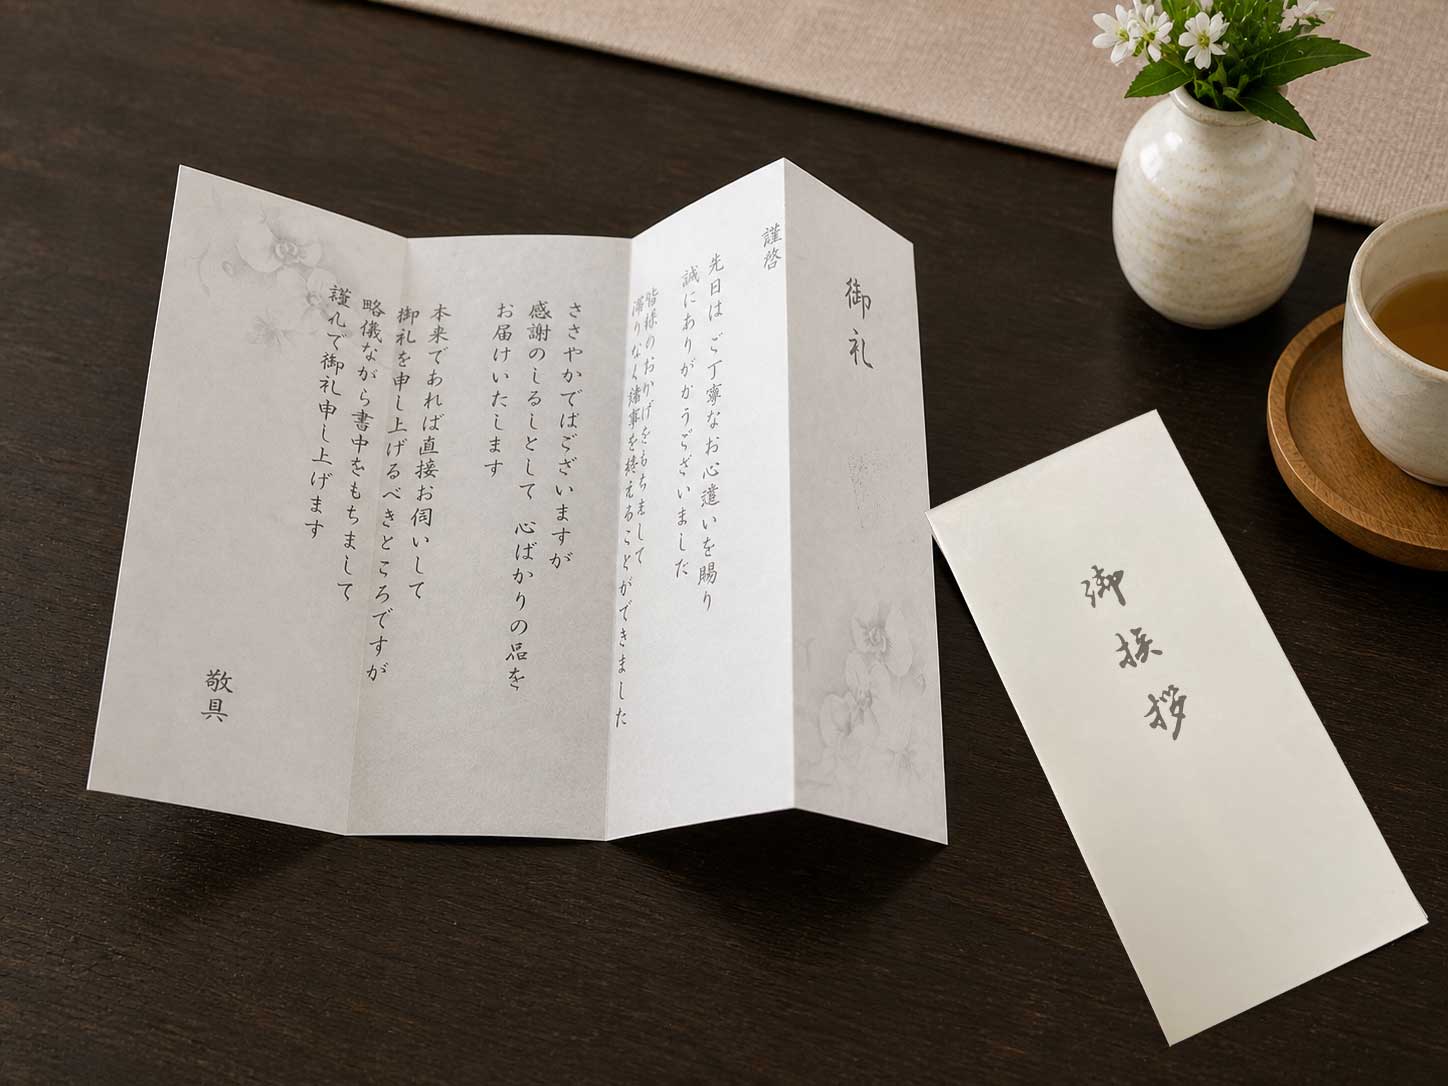 御礼
謹啓
先日は ご丁寧なお心遣いを賜り
誠にありがとうございました
皆様のおかげをもちまして
滞りなく諸事を終えることができました
ささやかではございますが
感謝のしるしとして 心ばかりの品を
お届けいたします
本来であれば直接お伺いして
御礼を申し上げるべきところですが
略儀ながら書中をもちまして
謹んで御礼申し上げます
敬具
御挨拶